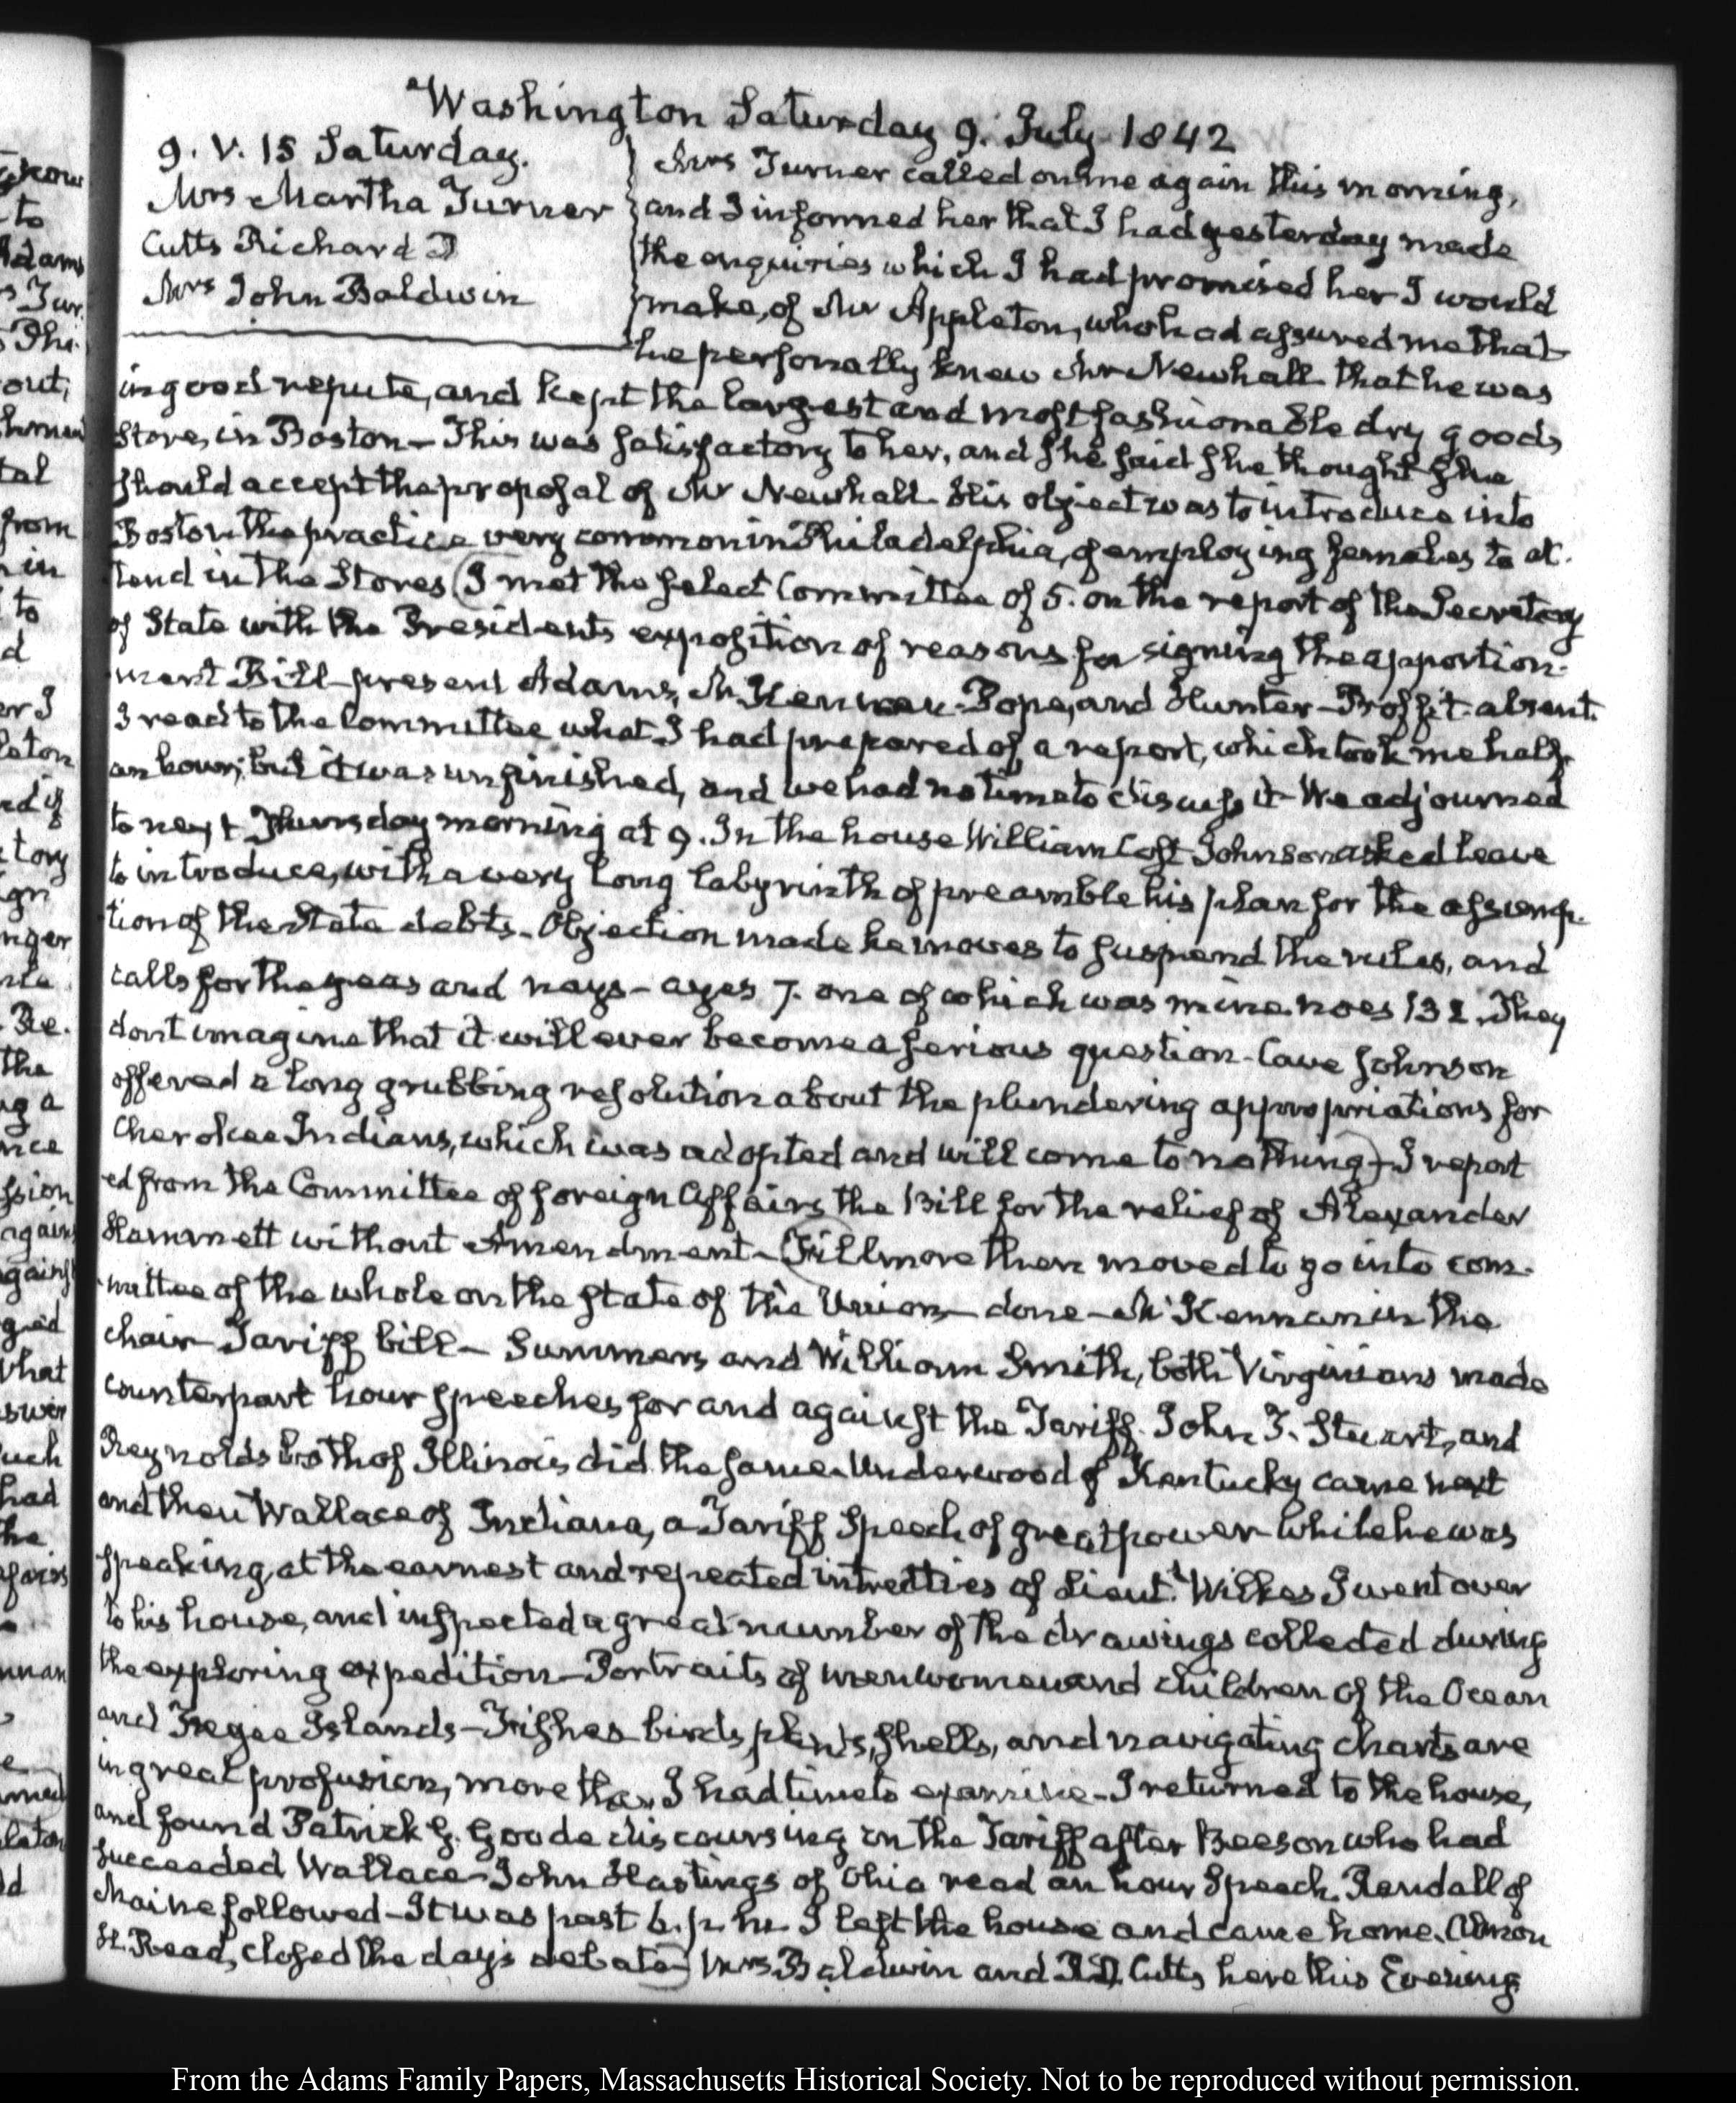 Washington Saturday 9. July 1842
9. V. 15 Saturday.
Mrs Martha Turner
Cutts Richard D
Mrs John Baldwin
Mrs Turner called on me again this morning,
and I informed her that I had yesterday made
the enquiries which I had promised her I would
make, of Mr Appleton, who had assured me that
he personally knew Mr Newhall that he was
in good repute, and kept the largest and most fashionable dry goods
Store, in Boston — This was satisfactory to her, and she said she thought she
should accept the proposal of Mr Newhall. His object was to introduce into
Boston the practice very common in Philadelphia, of employing females to at-
tend in the Stores (I met the select Committee of 5. on the report of the Secretary
of State with the Presidents exposition of reasons for signing the apportion-
ment Bill — present Adams, McKennan. Pope, and Hunter — Proffit absent.
I read to the Committee what I had prepared of a report, which took me half
an hour; but it was unfinished, and we had no time to discuss it — We adjourned
to next Thursday morning at 9. In the house William Cost Johnson asked leave
to introduce, with a very long labyrinth of preamble his plan for the assump-
tion of the State debts — Objection made he moves to suspend the rules, and
calls for the yeas and nays — ayes 7. one of which was mine. noes 132. They
dont imagine that it will ever become a serious question — Cave Johnson
offered a long grubbing resolution about the plundering appropriations for
Cherokee Indians, which was adopted and will come to nothing) — I report
ed from the Committee of foreign Affairs the Bill for the relief of Alexander
Hammett without Amendment — (Fillmore then moved to go into com-
mittee of the whole on the state of the Union — done — McKennan in the
chair — Tariff bill — Summers and William Smith, both Virginians made
counterpart hour speeches for and against the Tariff. John T. Stuart, and
Reynolds both of Illinois did the same. Underwood of Kentucky came next
and then Wallace of Indiana, a Tariff Speech of great power While he was
speaking, at the earnest and repeated intreaties of Lieut. Wilkes I went over
to his house, and inspected a great number of the drawings collected during
the exploring expedition — Portraits of men women and children of the Ocean
and Fegee Islands — Fishes birds, plants, shells, and navigating charts are
in great profusion, more than I had time to examine — I returned to the house,
and found Patrick G. Goode discoursing on the Tariff after Beeson who had
succeeded Wallace — John Hastings of Ohio read an hour Speech. Randall of
Maine followed — It was past 6. p. m. I left the house and came home. Almon
H. Read, closed the day's debate) Mrs Baldwin and R. D. Cutts here this Evening
From the Adams Family Papers, Massachusetts Historical Society. Not to be reproduced without permission.